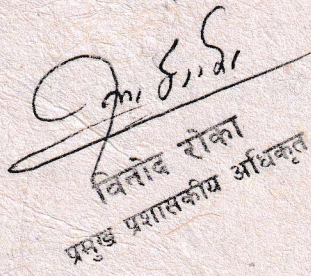 विनोद रोका
प्रमुख प्रशासकीय अधिकृत